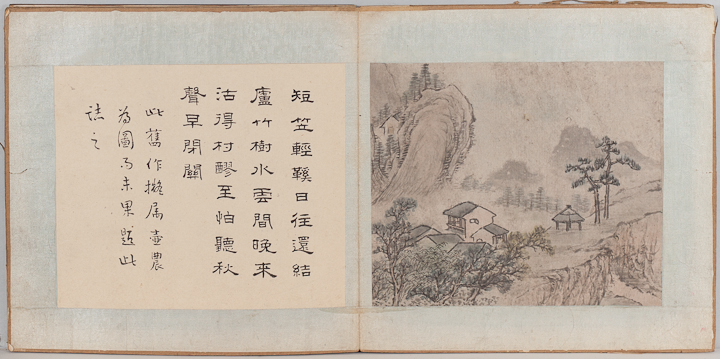 短笠輕鞵日往還結
廬竹樹水雲間晚來
沽得村醪至怕聽秋
聲早閉關
此舊作擬属壺農
為圖而未果題此
誌之